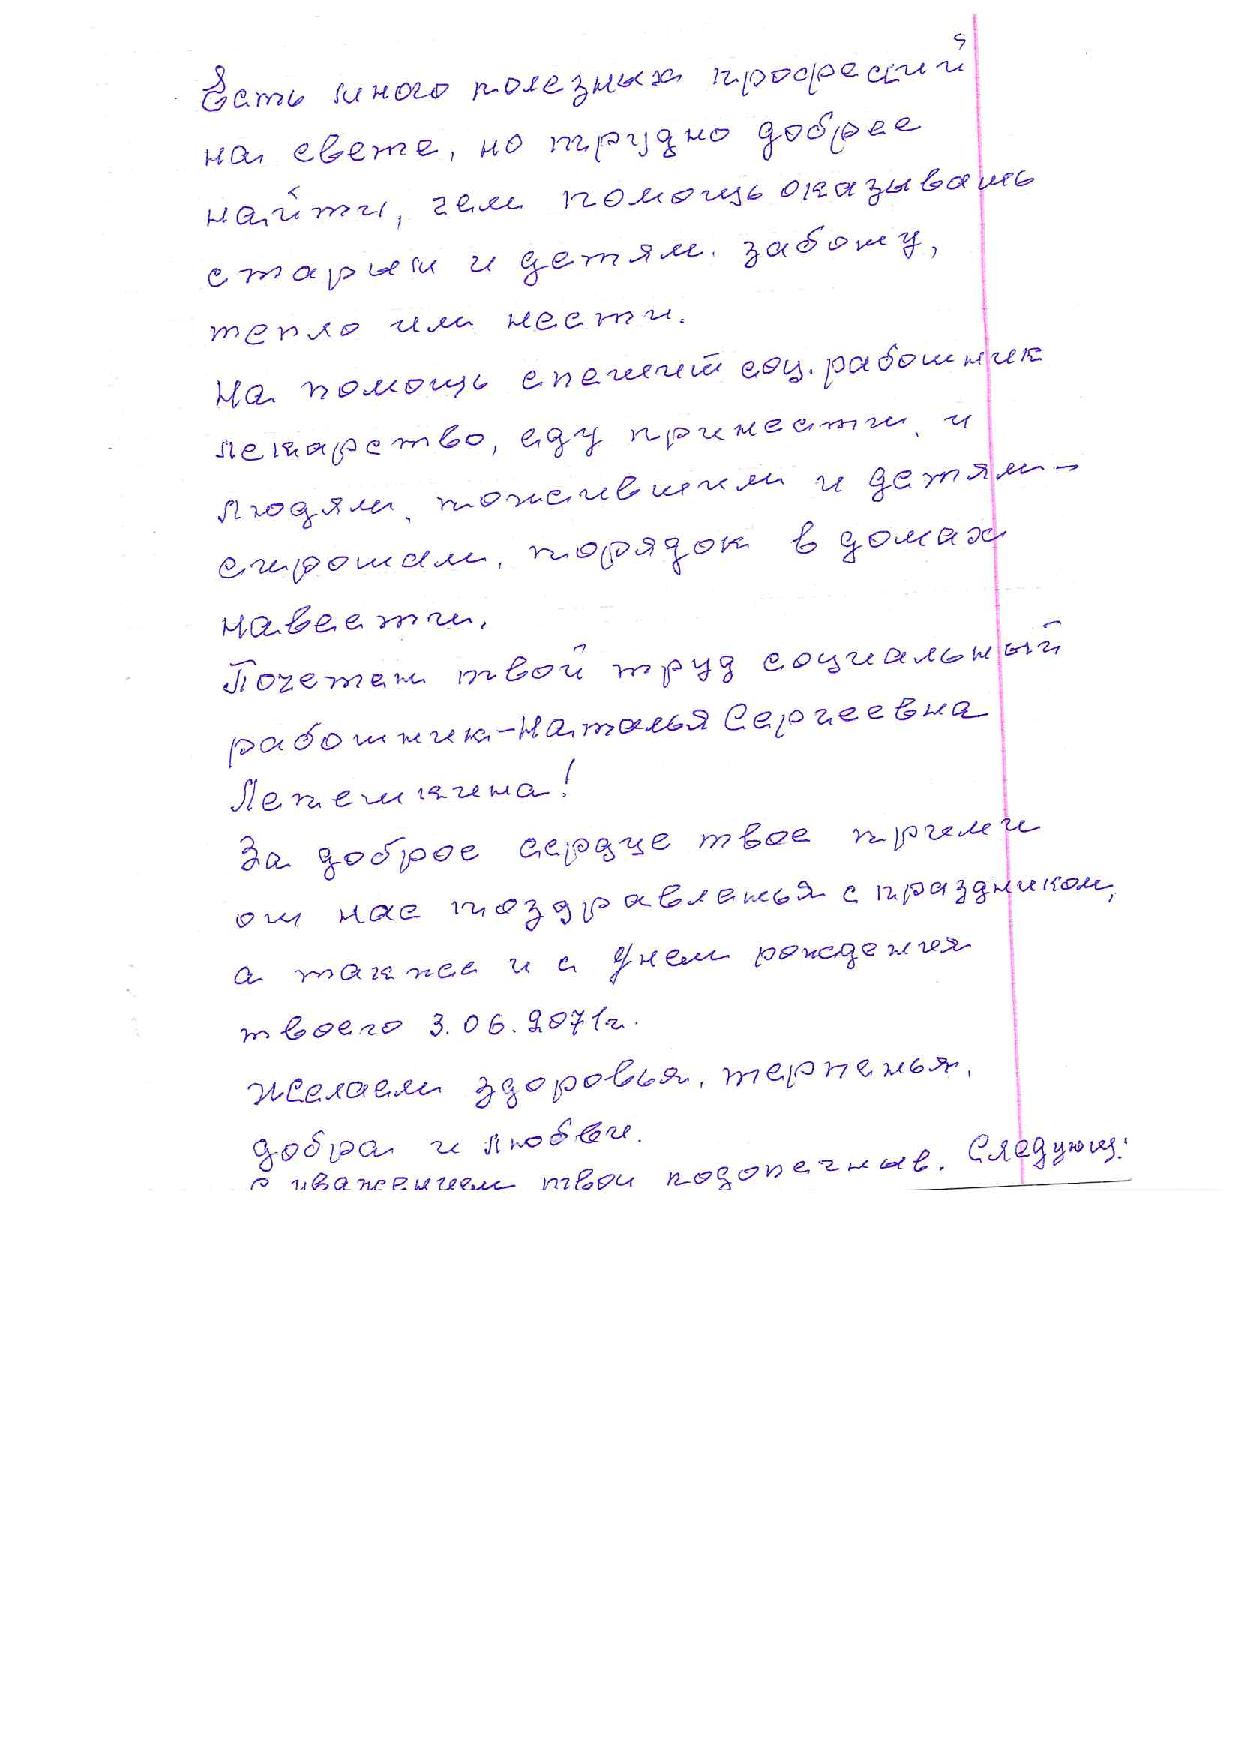 Есть много полезных профессий
на свете, но трудно добрее
найти, чем помощь оказывать
старым и детям. заботу,
тепло им нести.
На помощь спешит соц. работник
лекарство, еду принести, и
людям, пожившим и детям-
сиротам, порядок в домах
навести.
Почетен твой труд социальный
работник-Наталья Сергеевна
Лепешкина!
За доброе сердце твое прими
от нас поздравленья с праздником,
а также и с днем рождения
твоего 3.06.2071г.
Желаем здоровья, терпенья,
добра и любви.
С уважением твои подопечные. Следующ: